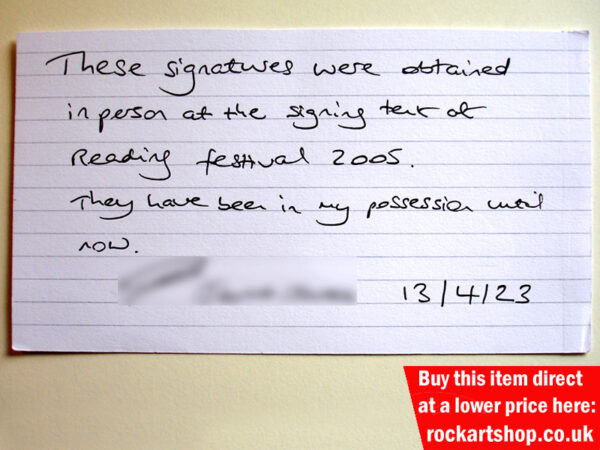 These signatures were obtained
in person at the signing tent at
Reading festival 2005.
They have been in my possession until
now.
13/4/23
Buy this item direct
at a lower price here:
rockartshop.co.uk